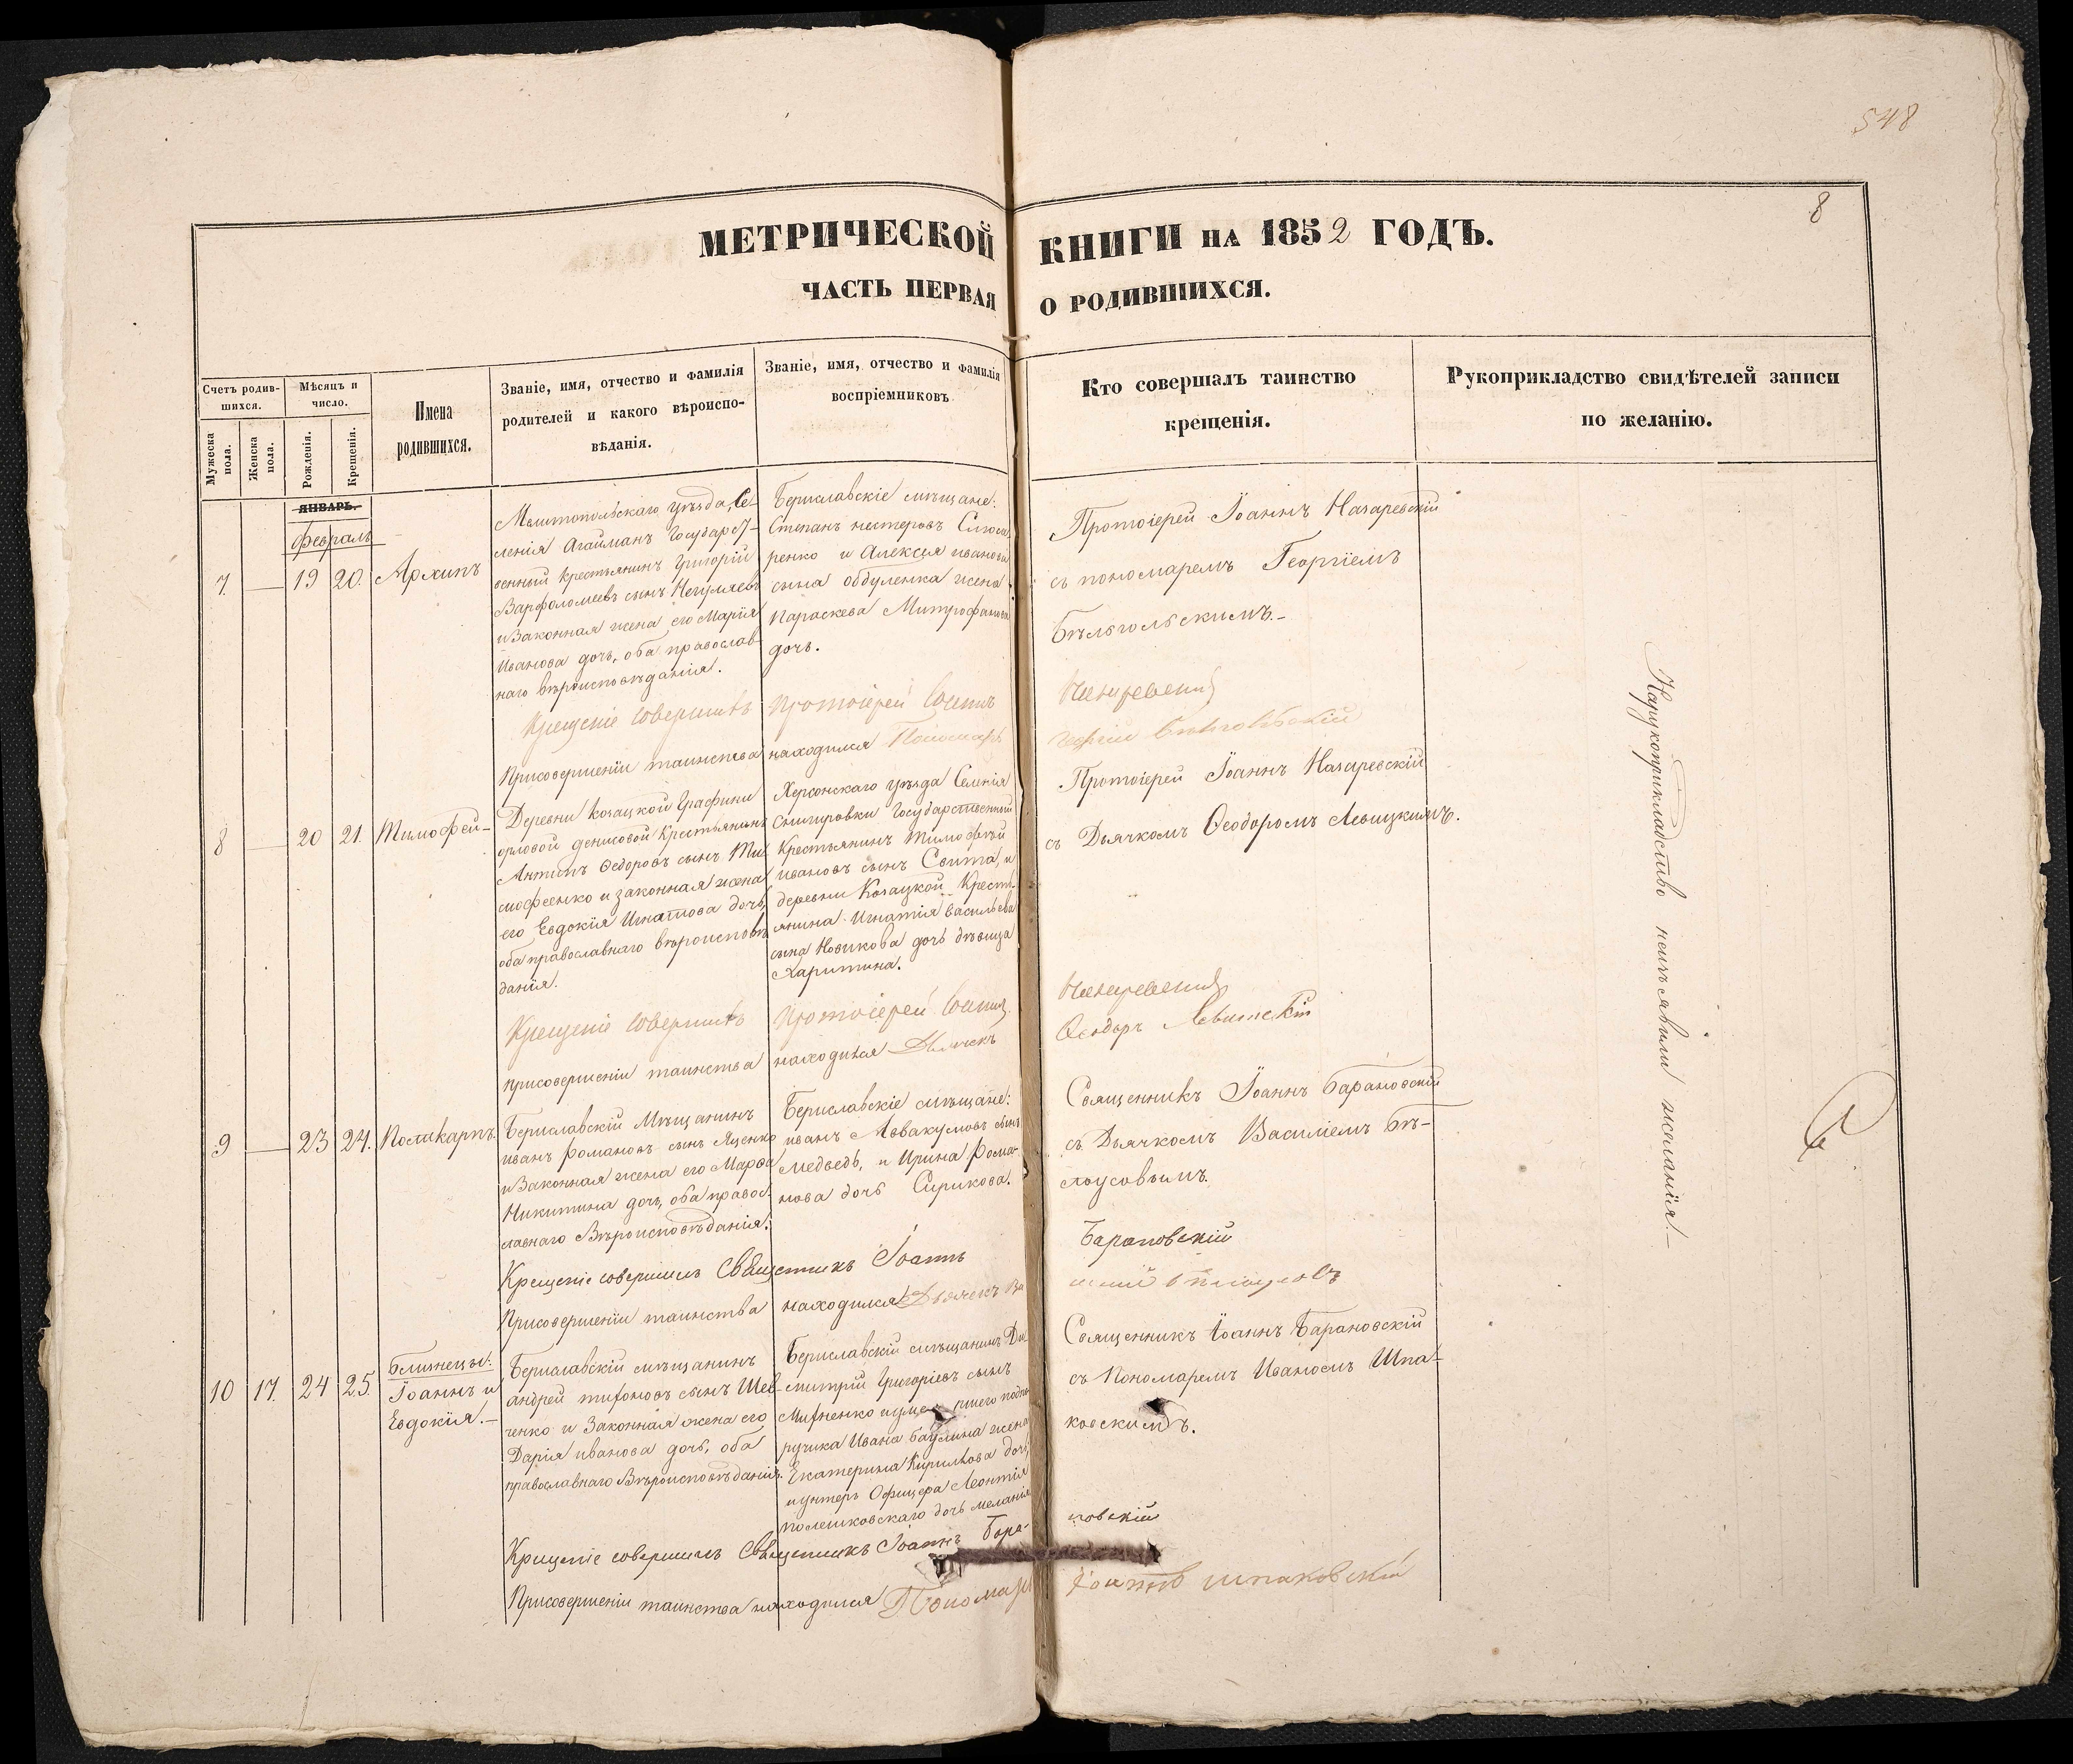 548
8
МЕТРИЧЕСКОЙ КНИГИ НА 1852 ГОДЪ.
ЧАСТЬ ПЕРВАЯ О РОДИВШИХСЯ.
Счетъ родив-
шихся.
Мужеска
пола.
Женска
пола.
Мѣсяцъ и
число.
Рожденія.
Крещенія.
Имена
родившихся.
Званіе, имя, отчество и фамилія
родителей и какого вѣроиспо-
вѣданія.
Званіе, имя, отчество и фамилія
воспріемниковъ
Кто совершалъ таинство
крещенія.
Рукоприкладство свидѣтелей записи
по желанію.
ЯНВАРЬ.
Февраль
7. — 19 20. Архипъ
Мелитопольскаго уѣзда, Се-
ленія Агайманъ Государст-
венный крестьянинъ Григорій
Варфоломеевъ сынъ
и законная жена его Марія
Иванова дочь, оба православ-
наго вѣроисповѣданія.
Бериславскіе мѣщане:
Степанъ нестеровъ Слюса
ренко и Алексея иванова
сына обдуленка жена
Параскева Митрофанова
дочь.
Протоіерей Іоаннъ Назаревскій
съ пономаремъ Георгіемъ
Бѣльгольскимъ.-
Крещеніе совершилъ Протоіерей Іоаннъ Назаревскій
Присовершеніи таинства находился Пономарь
8 — 20 21. Тимофей-
Деревни Козацкой Графини
орловой денисовой Крестьянинъ
Антипъ Ѳедоровъ сынъ Ти
мофеенко и законная жена
его Евдокія Игнатова дочь,
оба православнаго вѣроисповѣ
данія.
Херсонскаго уѣзда Селенія
Снигировки Государственный
Крестьянинъ Тимофѣй
ивановъ сынъ Свита, и
деревни Козацкой Кресть-
янина Игнатія Васильева
сына Новикова дочь дѣвица
Харитина.
Протоіерей Іоаннъ Назаревскій
съ Дьячкомъ Ѳеодоромъ Левицкимъ.
Крещеніе совершилъ Протоіерей Іоаннъ Назаревскій
присовершеніи таинства находился Дьячекъ Ѳеодоръ Левитскій
9 — 23 24. Поликарпъ.
Бериславскій Мѣщанинъ
иванъ романовъ сынъ Яценко
и Законная жена его Марфа
Никитина дочь, оба правос-
лавнаго Вѣроисповѣданія.
Бериславскіе мѣщане:
иванъ Аввакумовъ сынъ
медведь, и Ирина Рома-
нова дочь Сирикова.
Священникъ Іоаннъ Барановскій
съ Дьячкомъ Василіемъ Бѣ-
лоусовымъ.
Крещеніе совершилъ Священникъ Іоаннъ Барановскій
Присовершеніи таинства находился Дьячекъ Ва
10 17. 24 25.
близнецы:
Іоаннъ и
Евдокія.-
Бериславскій мѣщанинъ
андрей тихоновъ сынъ Шев-
ченко и Законная жена его
Дарія иванова дочь, оба
православнаго Вѣроисповѣданія.
Бериславскій мѣщанинъ Ди
митрій Григоріевъ сынъ
ручика Ивана Баулина жена
Екатерина Кирилова дочь,
и унтеръ Офицера Леонтія
полешковскаго дочь меланія
Священникъ Іоаннъ Барановскій
съ Пономаремъ Иваномъ Шпа-
ковскимъ.
Крещеніе совершилъ Священникъ Іоаннъ Бара- новскій
Присовершеніи таинства находился Пономарь Іоаннъ Шпаковскій
Нарукоприкладство неизъявили желанія.-